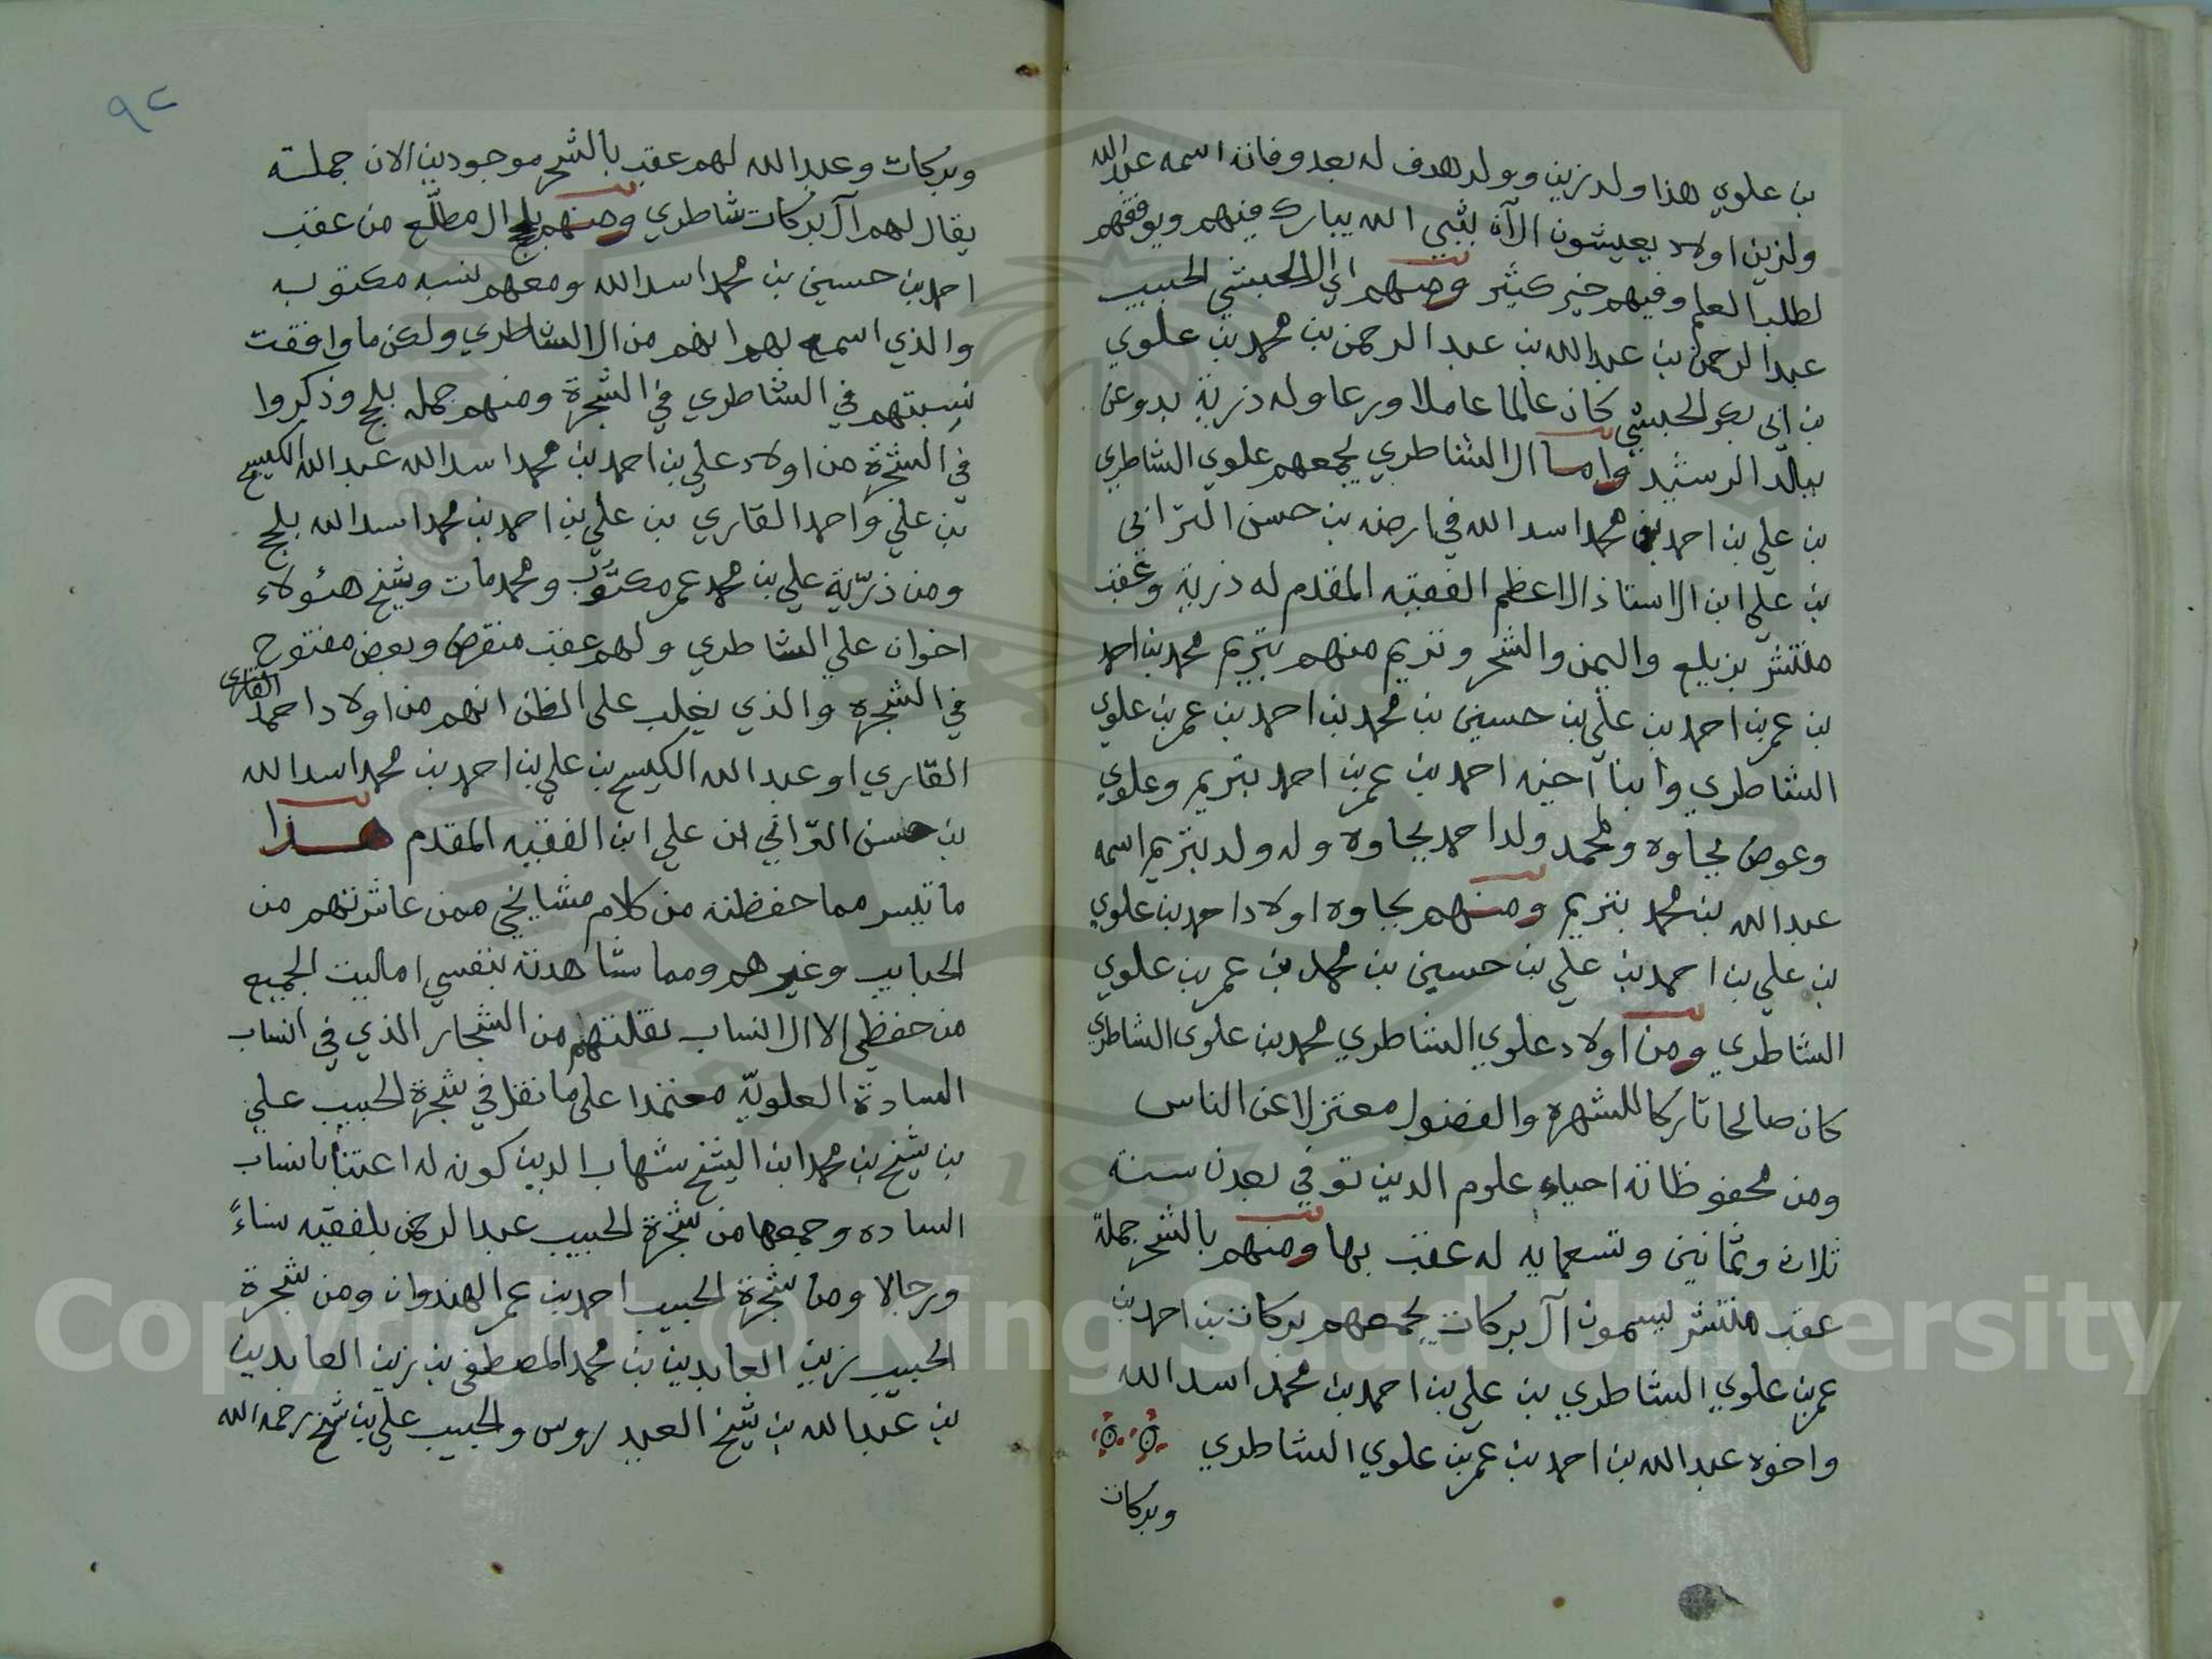 بن علوي هذا ولد زين وولد هدف له بعد وفاته اسمه عبدالله
ولزين اولاد يعيشون الآن بثبي الله يبارك فيهم ويوفقهم
لطلب العلم وفيهم خير كثير ومنهم اي ال الحبشي الحبيب
عبدالرحمن بن عبدالله بن عبدالرحمن بن محمد بن علوي
بن ابي بكر الحبشي كان عالما عاملا ورعا وله ذرية بدوعن
ببالد الرشيد واما ال الشاطري يجمعهم علوي الشاطري
بن علي بن احمد بن محمد اسدالله في ارضه بن حسن الترابي
بن علي ابن الاستاذ الاعظم الفقيه المقدم له ذرية وعقب
منتشر بزيلع واليمن والشحر وتريم منهم بتريم محمد بن احمد
بن عمر بن احمد بن علي بن حسين بن محمد بن احمد بن عمر بن علوي
الشاطري وابنا اخيه احمد بن عمر بن احمد بتريم وعلوي
وعوض بجاوه ولمحمد ولد احمد بجاوه وله ولد بتريم اسمه
عبدالله بن محمد بتريم ومنهم بجاوه اولاد احمد بن علوي
بن علي بن احمد بن علي بن حسين بن محمد بن عمر بن علوي
الشاطري ومن اولاد علوي الشاطري محمد بن علوي الشاطري
كان صالحا تاركا للشهره والفضول معتزلا عن الناس
ومن محفوظاته احياء علوم الدين توفي بعدن سنة
ثلاث وثمانين وتسعمايه له عقب بها ومنهم بالشحر جملة
عقب منتشر يسمون آل بركات يجمعهم بركات بن احمد بن
عمر بن علوي الشاطري بن علي بن احمد بن محمد اسدالله
واخوه عبدالله بن احمد بن عمر بن علوي الشاطري
وبركات
٩٢
وبركات وعبدالله لهم عقب بالشحر موجودين الان جملته
يقال لهم آل بركات شاطري ومنهم بلج ال مطلع من عقب
احمد بن حسين بن محمد اسدالله ومعهم نسبه مكتوبه
والذي اسمع بهم انهم من ال الشاطري ولكن ما وافقت
نسبتهم في الشاطري في الشجرة ومنهم جمله بلج وذكروا
في الشجرة من اولاد علي بن احمد بن محمد اسدالله عبدالله الكيسح
بن علي واحمد القاري بن علي بن احمد بن محمد اسدالله بلج
ومن ذرية علي بن محمد عمر مكتوب ومحمد مات وشيخ هئولاء
اخوان علي الشاطري ولهم عقب منقرض وبعض مفتوح
في الشجره والذي يغلب على الظن انهم من اولاد احمد القاري
القاري او عبدالله الكيسح بن علي بن احمد بن محمد اسدالله
بن حسن الترابي ابن علي ابن الفقيه المقدم هذا
ما تيسر مما حفظته من كلام مشايخي ممن عاشرتهم من
الحبايب وغيرهم ومما شاهدته بنفسي امليت الجميع
من حفظي الا ال انساب نقلتهم من الشجار الذي في انساب
السادة العلويه معتمدا على ما نقل في شجرة الحبيب علي
بن شيخ بن محمد ابن الشيخ شهاب الدين كونه له اعتنا بانساب
الساده وجمعها من شجرة الحبيب عبدالرحمن بلفقيه نساءً
ورجالا ومن شجرة الحبيب احمد بن عمر الهندوان ومن شجرة
الحبيب زين العابدين بن محمد المصطفى بن زين العابدين
بن عبدالله بن شيخ العيدروس والحبيب علي بن شيخ رحمه الله
Copyright © King Saud University
1957